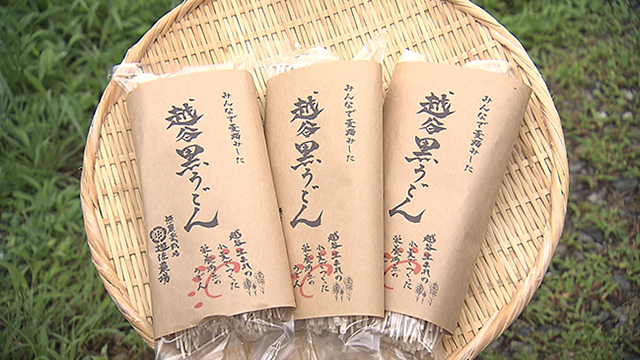 みんなで麦踏みした
越谷黒うどん
越谷生まれの
小麦でつくった
みんなで麦踏みした
越谷黒うどん
越谷生まれの
小麦でつくった
みんなで麦踏みした
越谷黒うどん
越谷生まれの
小麦でつくった